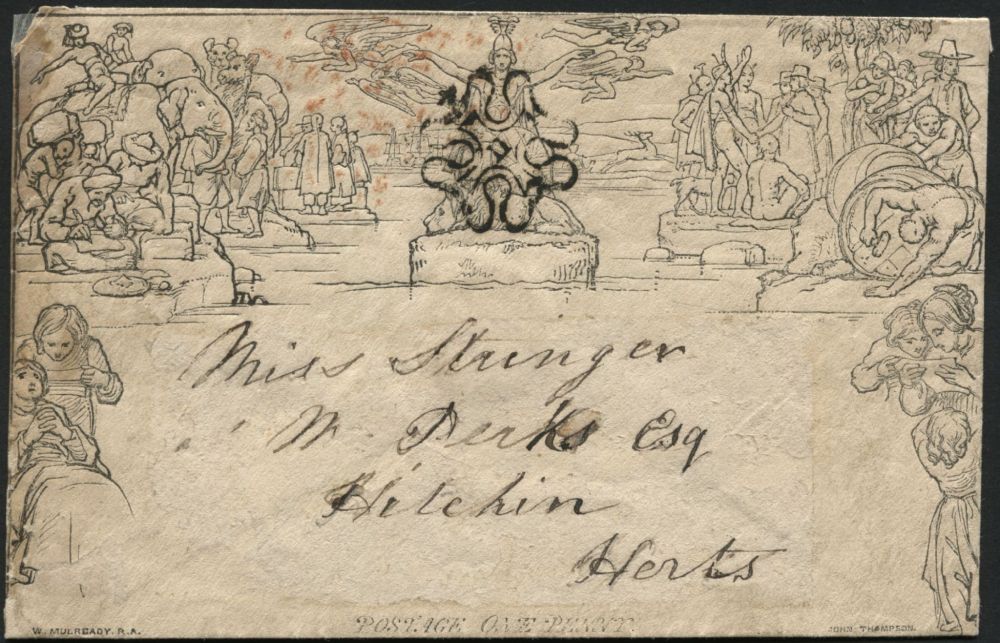 Miss Stringer
W. Perks Esq
Hitchin
Herts
POSTAGE ONE PENNY
W. MULREADY. R.A.
JOHN THOMPSON.